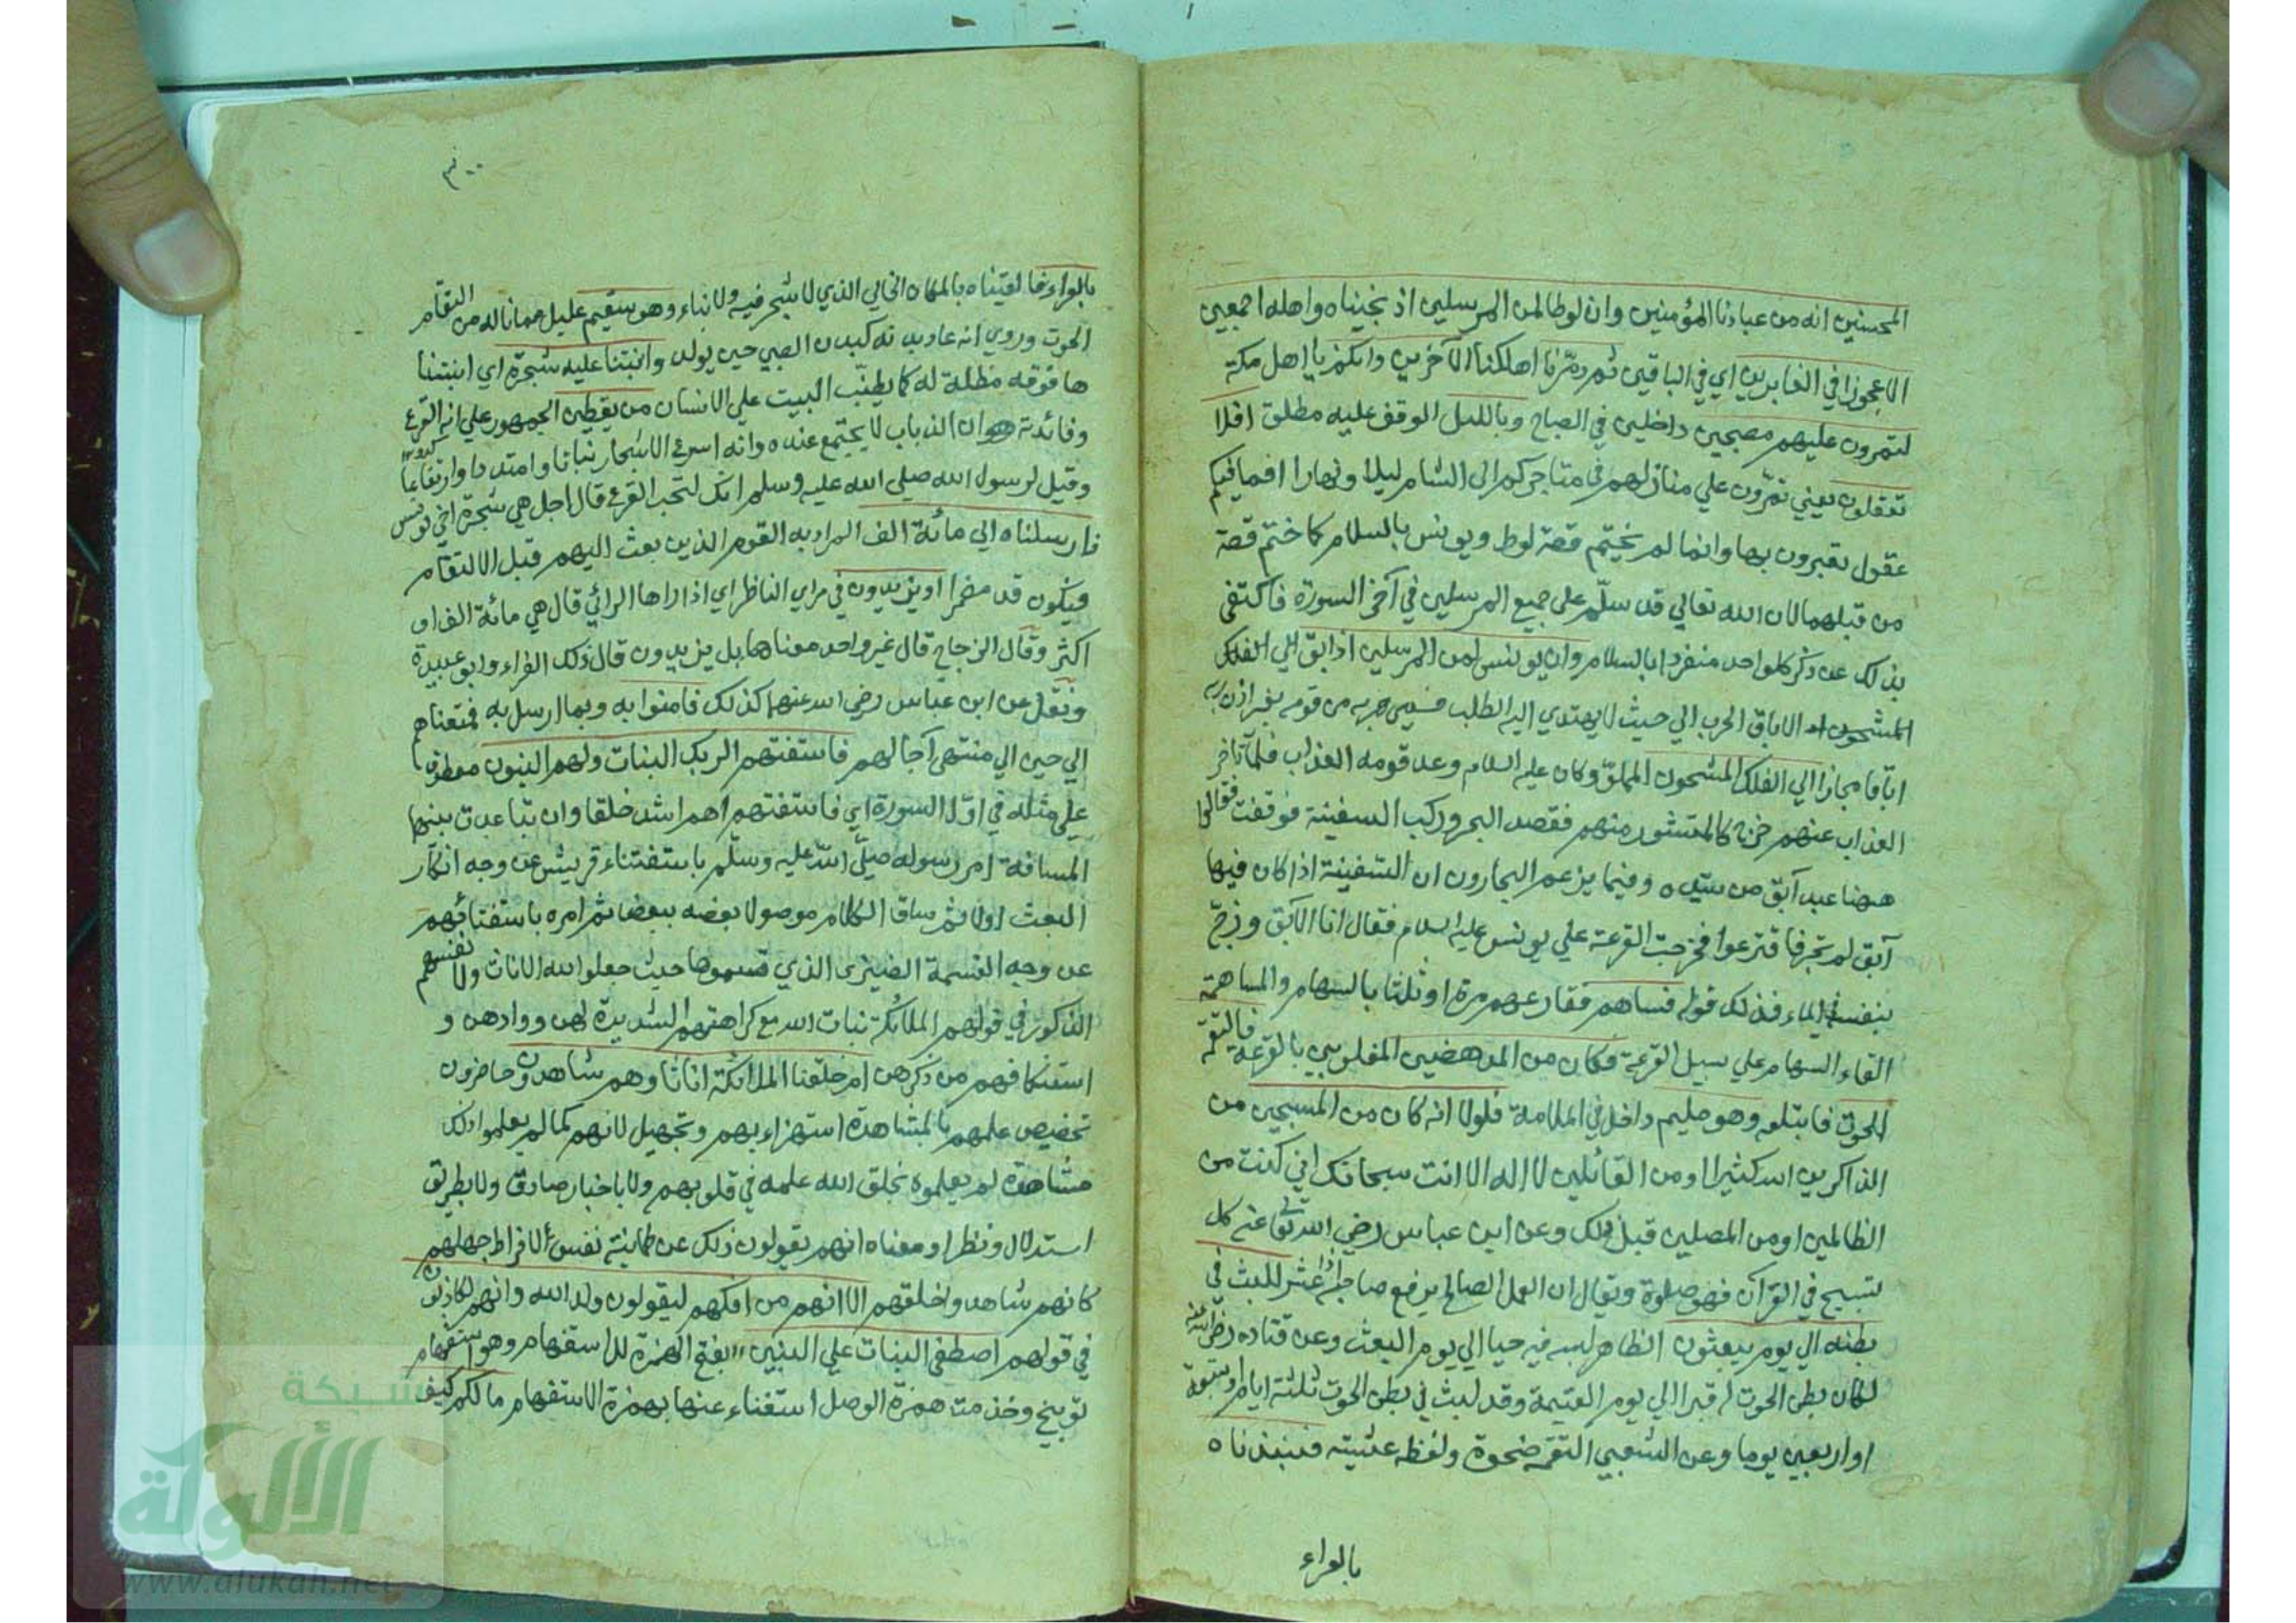 المحسنين انه من عبادنا المؤمنين وان لوطا لمن المرسلين اذ نجيناه واهله اجمعين
الا عجوزا في الغابرين اي في الباقين ثم دمّرنا اهلكنا الآخرين وانكم يا اهل مكة
لتمرون عليهم مصبحين داخلين في الصباح وبالليل الوقف عليه مطلق افلا
تعقلون يعني تمرّون علي منازلهم في متاجركم الى الشام ليلا ونهارا افما فيكم
عقول تعتبرون بها وانما لم يختم قصة لوط ويونس بالسلام كما ختم قصة
من قبلهما لان الله تعالي قد سلّم على جميع المرسلين في آخر السورة فاكتفى
بذلك عن ذكر كل واحد منفردا بالسلام وان يونس لمن المرسلين اذ ابق الي الفلك
المشحون الاباق الهرب الي حيث لا يهتدي اليه الطلب فسمي هربه من قومه بغير اذن ربه
اباقا مجازا الي الفلك المشحون المملوّ وكان عليه السلام وعد قومه العذاب فلما تأخر
العذاب عنهم خرج كالمتشور منهم فقصد البحر وركب السفينة فوقفت فقالوا
ههنا عبد آبق من سيّده وفيما يزعم البحارون ان السفينة اذا كان فيها
آبق لم تجر فاقترعوا فخرجت القرعة علي يونس عليه السلام فقال انا الآبق وزجّ
بنفسه في الماء فذلك قوله فساهم فقارعهم مرة او ثلثا بالسهام والمساهمة
القاء السهام علي سبيل القرعة فكان من المدحضين المغلوبين بالقرعة فالتقمه
الحوت فابتلعه وهو مليم داخل في الملامة فلولا انه كان من المسبحين من
الذاكرين الله كثيرا او من القائلين لا اله الا انت سبحانك اني كنت من
الظالمين او من المصلين قبل ذلك وعن ابن عباس رضي الله تعالى عنه كل
تسبيح في القرآن فهو صلوة ويقال ان العمل الصالح يرفع صاحبه اذا عثر للبث في
بطنه الي يوم يبعثون الظاهر لبثه فيه حيا الي يوم البعث وعن قتاده رضي الله عنه
لكان بطن الحوت له قبرا الي يوم القيمة وقد لبث في بطن الحوت ثلثة ايام او سبعة
او اربعين يوما وعن الشعبي التقمه ضحوة ولفظه عشية فنبذناه
بالعراء
٣٠٠
بالعراء فالقيناه بالمكان الخالي الذي لا شجر فيه ولا نباء وهو سقيم عليل مما ناله من التقام
الحوت وروي انه عاد بدنه كبدن الصبي حين يولد وانبتنا عليه شجرة اي انبتنا
ها فوقه مظلة له كما يطنّب البيت علي الانسان من يقطين الجمهور علي انه القرع
وفائدته ان الذباب لا يجتمع عنده وانه اسرع الاشجار نباتا وامتدادا وارتفاعا
وقيل لرسول الله صلي الله عليه وسلم انك لتحب القرع قال اجل هي شجرة اخي يونس
فارسلناه الي مائة الف المراد به القوم الذين بعث اليهم قبل الالتقام
فيكون قد مضمرا او يزيدون في مراي الناظر اي اذا راها الرائي قال هي مائة الف او
اكثر وقال الزجاج قال غير واحد معناها بل يزيدون قال ذلك الفراء وابو عبيدة
ونقل عن ابن عباس رضي الله عنهما كذلك فامنوا به وبما ارسل به فمتعناهم
الي حين الي منتهى آجالهم فاستفتهم الربك البنات ولهم البنون معطوف
علي مثله في اوّل السورة اي فاستفتهم اهم اشد خلقا وان تباعدت بينهما
المسافة امر رسوله صلّى الله عليه وسلّم باستفتاء قريش عن وجه انكار
البعث اولا ثم ساق الكلام موصولا بعضه ببعض ثم امره باستفتائهم
عن وجه القسمة الضيزى الذي قسموها حيث جعلوا لله الاناث ولانفسهم
الذكور في قولهم الملائكة بنات الله مع كراهتهم الشديدة لهن ووادهن و
استنكافهم من ذكرهن ام خلقنا الملائكة اناثا وهم شاهدون حاضرون
تخصيص علمهم بالمشاهدة استهزاء بهم وتجهيل لانهم كما لم يعلموا ذلك
مشاهدة لم يعلموه بخلق الله علمه في قلوبهم ولا باخبار صادق ولا بطريق
استدلال ونظر او معناه انهم يقولون ذلك عن طمانينة نفس لافراط جهلهم
كانهم شاهدوا خلقهم الا انهم من افكهم ليقولون ولد الله وانهم لكاذبون
في قولهم اصطفى البنات علي البنين بفتح الهمزة للاستفهام وهو استفهام
توبيخ وحذفت همزة الوصل استغناء عنها بهمزة الاستفهام ما لكم كيف
شبكة
الألوكة
www.alukah.net